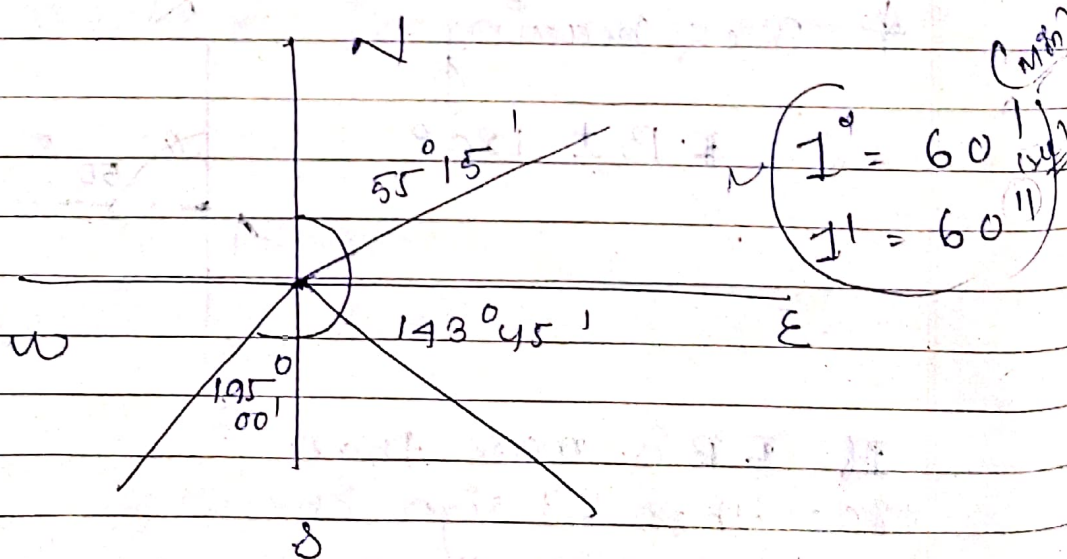 N
55°15'
1° = 60'
1' = 60"
W
143°45'
E
195°
00'
S